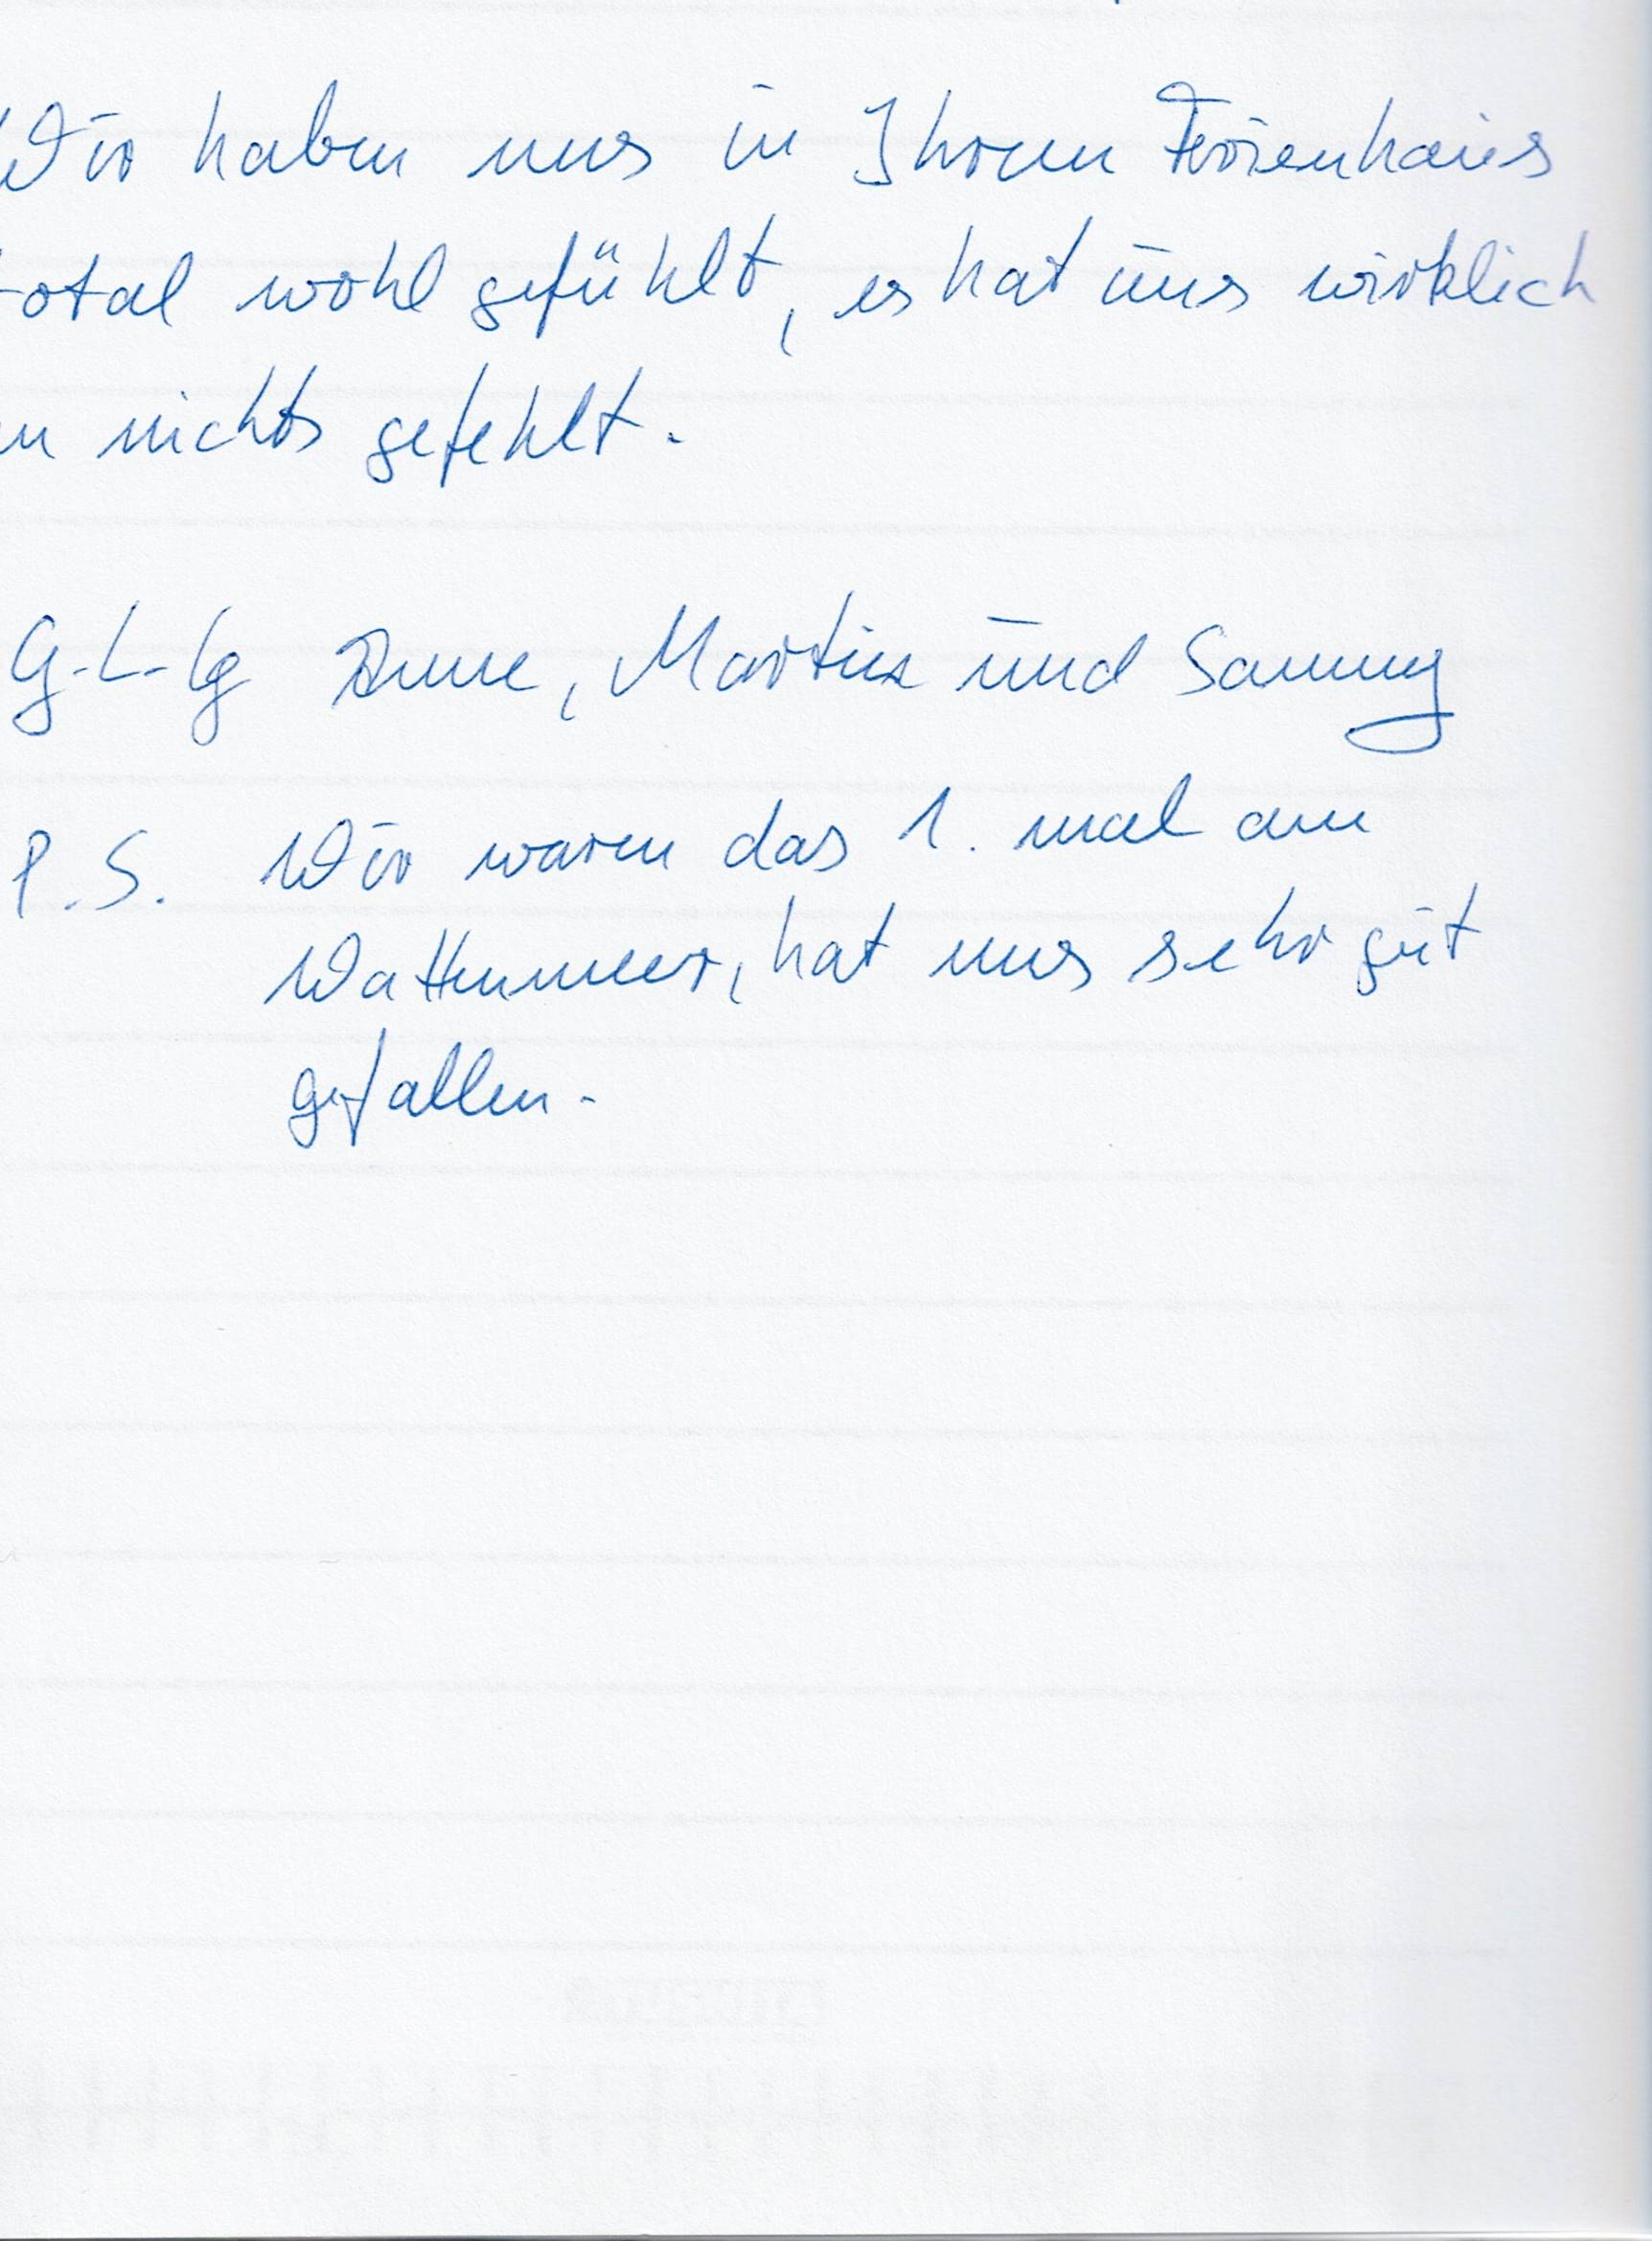 Wir haben uns in Ihrem Ferienhaus
total wohl gefühlt, es hat uns wirklich
an nichts gefehlt.
G.L.G Anne, Martin und Sammy
P.S. Wir waren das 1. mal am
Wattenmeer, hat uns sehr gut
gefallen.